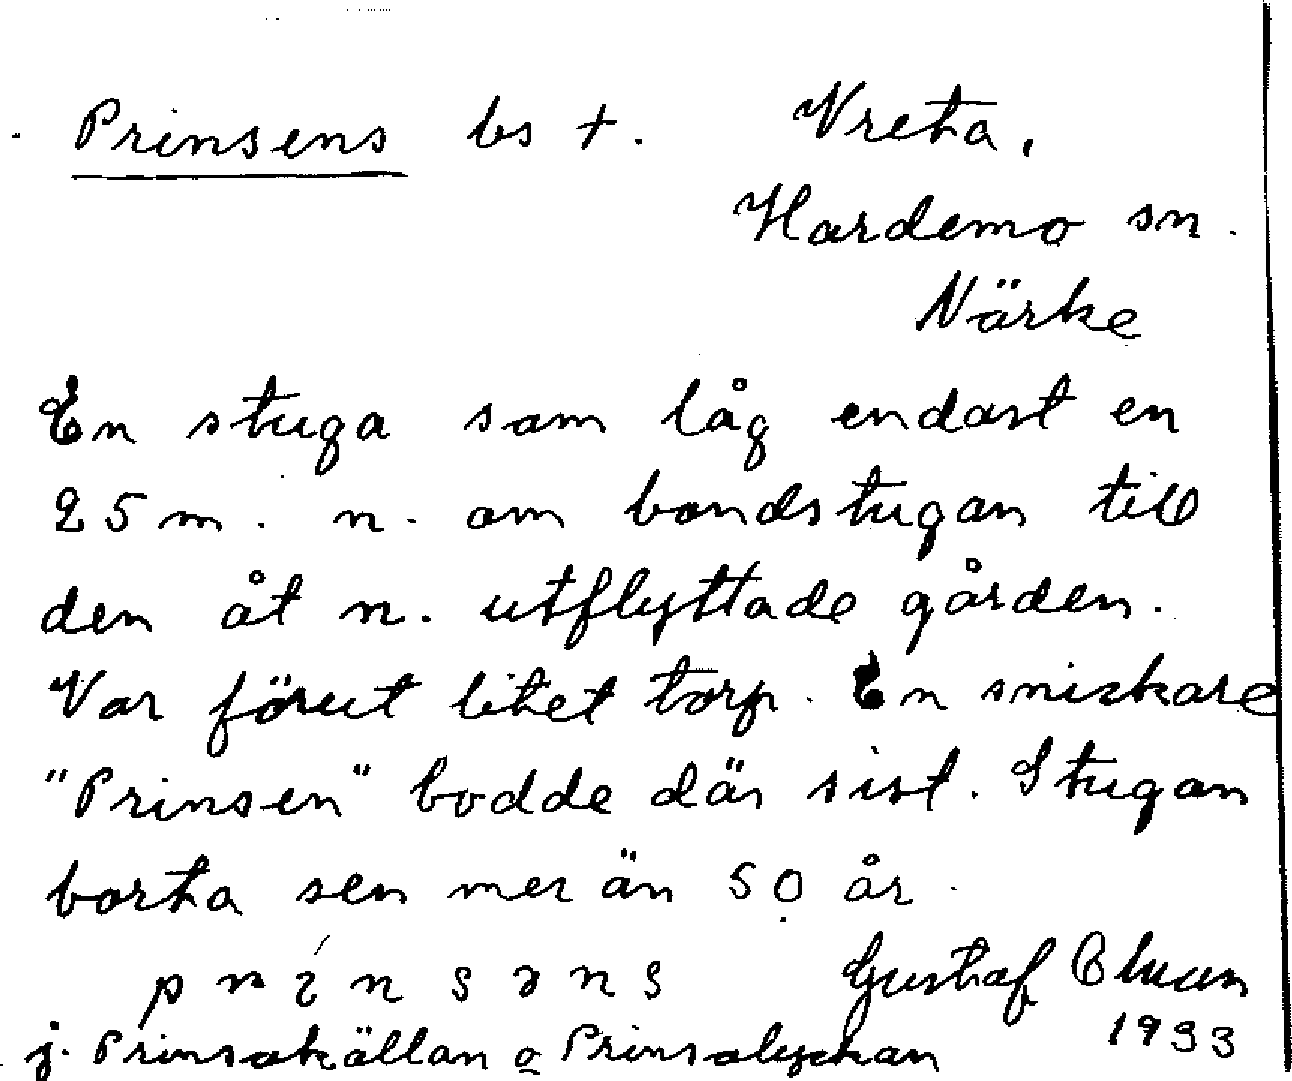 Prinsens bs +. Vreta,
Hardemo sn.
Närke
En stuga som låg endast en
25 m. n. om bondstugan till
den åt n. utflyttade gården.
Var förut litet torp. En snickare
"Prinsen" bodde där sist. Stugan
borta sen mer än 50 år.
Gustaf
1933
j. Prinsakällan o Prinsalyckan